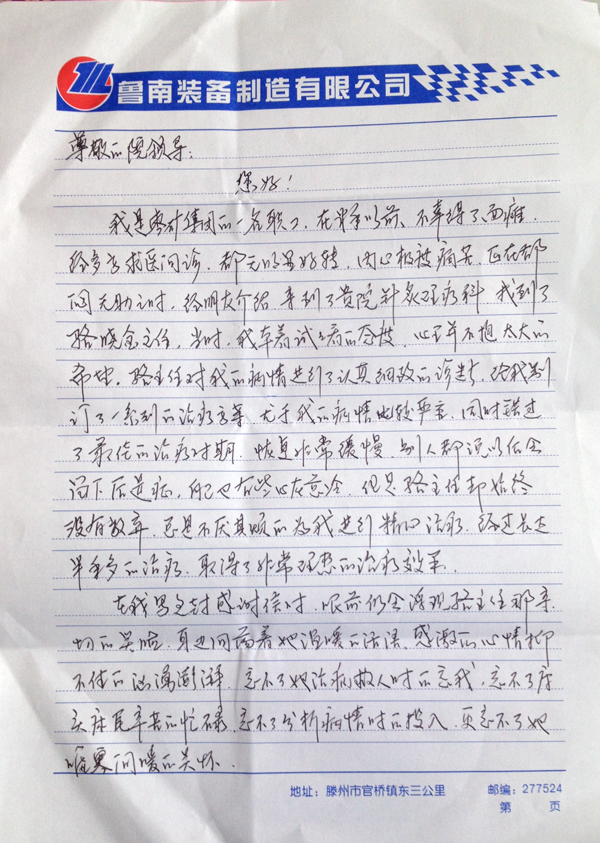 鲁南装备制造有限公司
尊敬的院领导：
您好！
我是枣矿集团的一名职工，在半年以前，不幸得了面瘫，
经多方求医问诊，都无明显好转，内心极被痛苦，正在郁
闷无助之时，经朋友介绍，来到了贵院针灸理疗科，我找到了
骆晓金主任，当时，我本着试试看的态度，心里并不抱太大的
希望，骆主任对我的病情进行了认真细致的诊断，给我制
订了一系列的治疗方案，尤于我的病情比较严重，同时错过
了最佳的治疗时期，恢复非常缓慢，别人都说以后会
留下后遗症，自己也有些心灰意冷，但是骆主任却始终
没有放弃，总是不厌其烦的为我进行精心治疗，经过长达
半年多的治疗，取得了非常理想的治疗效果。
在我写这封感谢信时，眼前仍会浮现骆主任那亲
切的笑脸，身边回荡着她温暖的话语，感激的心情抑
不住的汹涌澎湃，忘不了她治病救人时的忘我，忘不了
忙碌，忘不了分析病情时的投入，更忘不了她
嘘寒问暖的关怀。
地址：滕州市官桥镇东三公里
邮编：277524
第 页